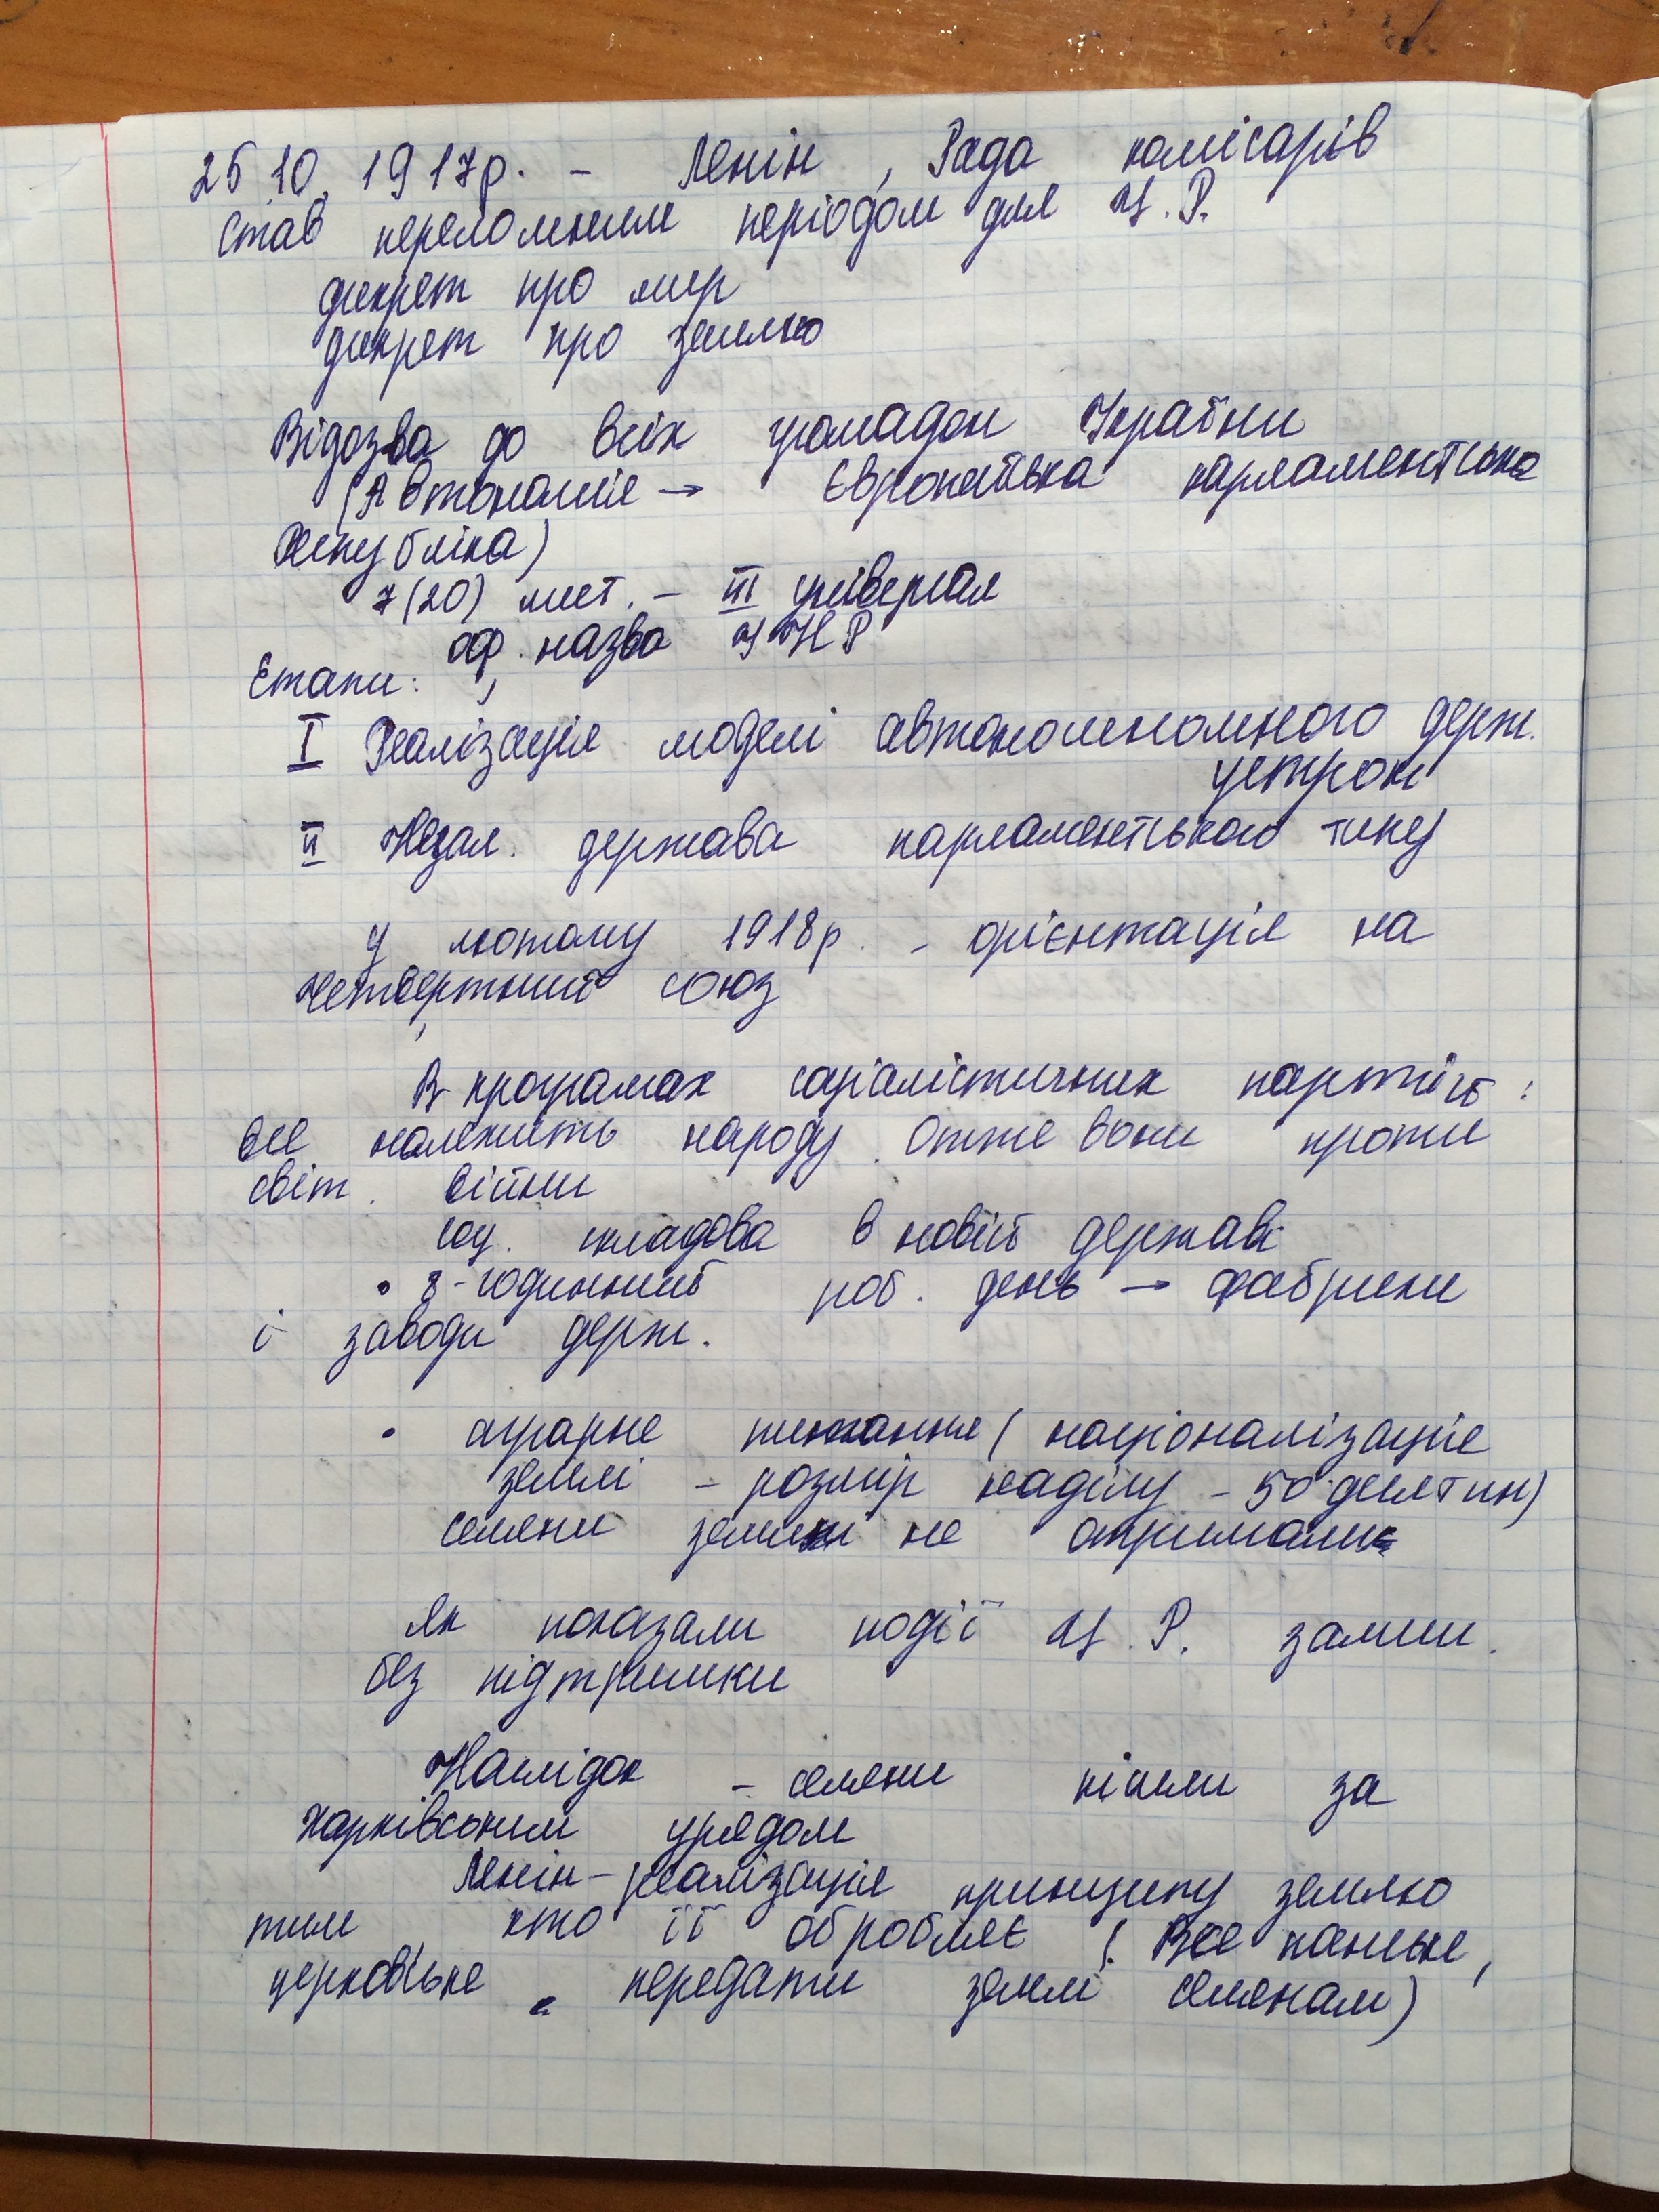 25.10.1917р. - Ленін, Рада комісарів
став переломним періодом для Ц.Р.
дикрет про мир
дикрет про землю
Відозва до всіх громадон України
(Автономія → Європейська парламентська
Республіка)
7(20) лист. - III універсал
оф. назва УНР
Етапи:
I Реалізація моделі автономономного держ.
устрою
II Незал. держава парламентського типу
У лютому 1918р. - орієнтація на
Четвертний союз
В програмах соціалістичних партій:
все належить народу. Отже вони проти
світ. війни
соц. складова в новій державі
• 8-годинний роб. день → фабрики
і заводи держ.
• аграрне питання (націоналізація
землі - розмір наділу - 50 десятин)
селяни землі не отримали
Як показали події Ц.Р. залиш.
без підтримки
Наслідок - селяни пішли за
Харківським урядом
Ленін - реалізація принципу землю
тим, хто її обробляє (Все панське,
церковське передати землі селянам)